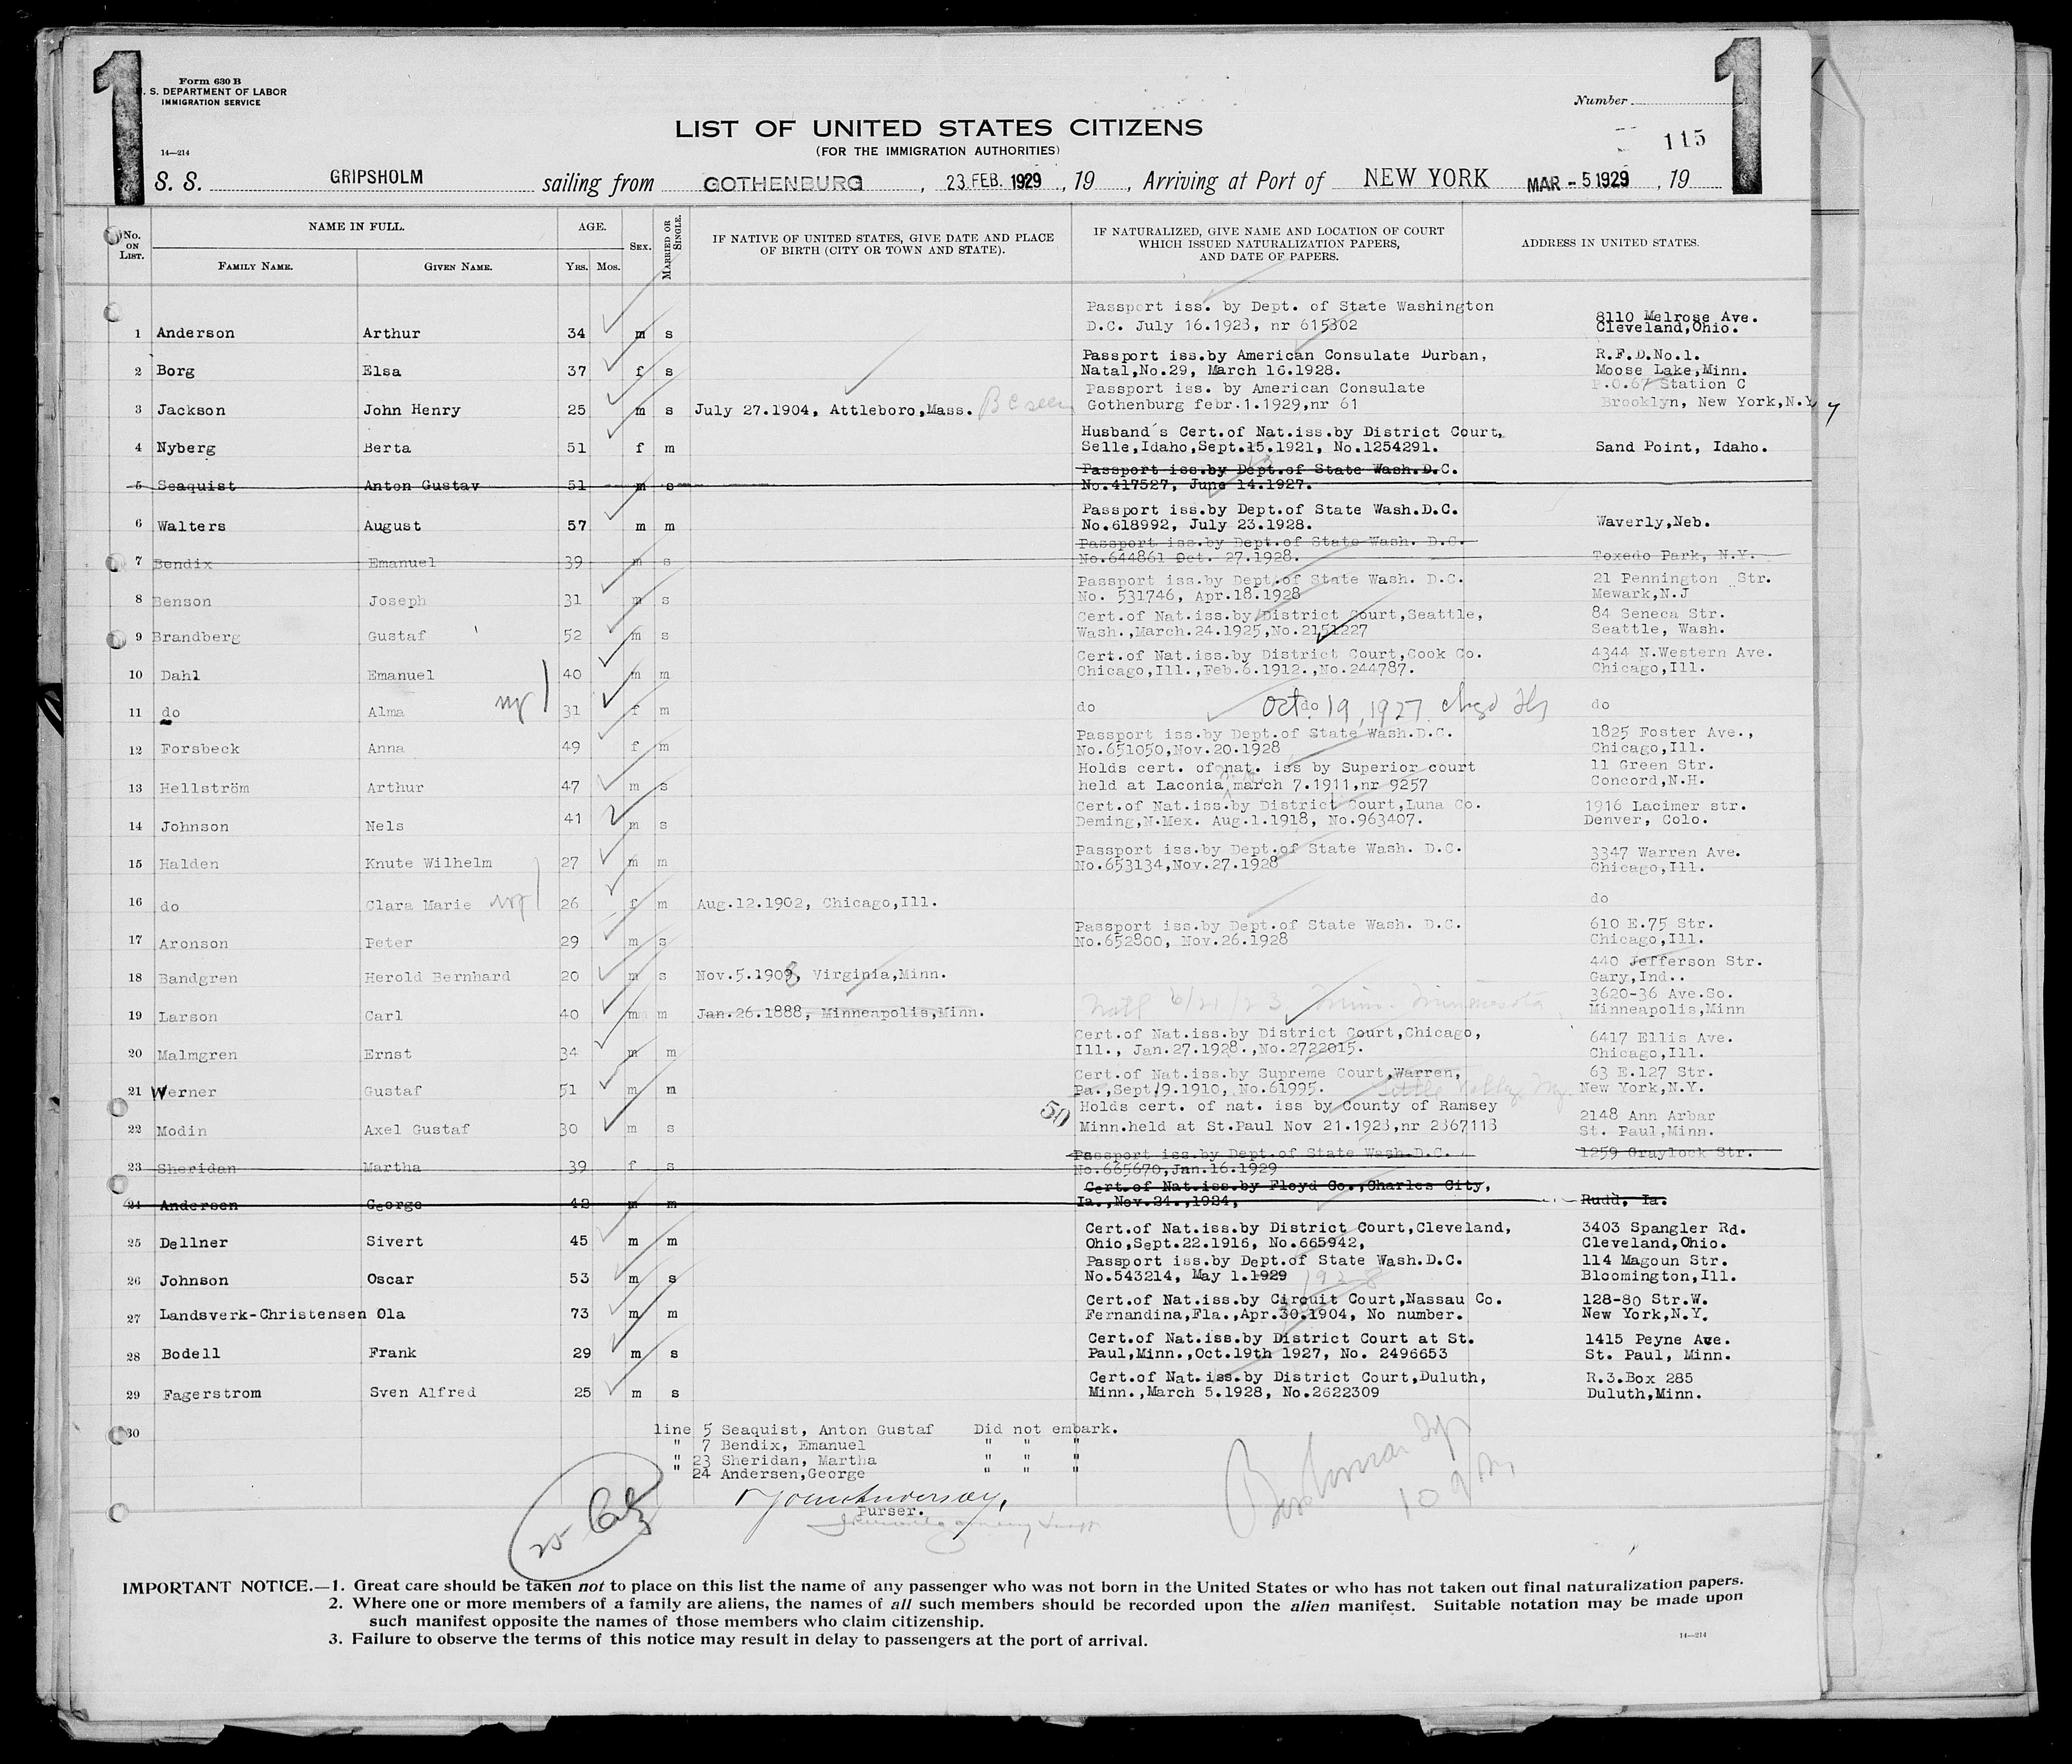 1 1
Form 630 B
U. S. DEPARTMENT OF LABOR
IMMIGRATION SERVICE
Number
LIST OF UNITED STATES CITIZENS
(FOR THE IMMIGRATION AUTHORITIES)
115
14—214
S. S. GRIPSHOLM sailing from GOTHENBURG, 23.FEB.1929, 19 , Arriving at Port of NEW YORK MAR - 5 1929, 19
No. ON LIST.
NAME IN FULL.
FAMILY NAME. GIVEN NAME.
AGE.
YRS. MOS.
SEX.
MARRIED OR SINGLE.
IF NATIVE OF UNITED STATES, GIVE DATE AND PLACE
OF BIRTH (CITY OR TOWN AND STATE).
IF NATURALIZED, GIVE NAME AND LOCATION OF COURT
WHICH ISSUED NATURALIZATION PAPERS,
AND DATE OF PAPERS.
ADDRESS IN UNITED STATES.
Passport iss. by Dept. of State Washington 8110 Melrose Ave.
1 Anderson Arthur 34 m s D.C. July 16.1923, nr 615302 Cleveland,Ohio.
Passport iss.by American Consulate Durban, R.F.D.No.1.
2 Borg Elsa 37 f s Natal,No.29, March 16.1928. Moose Lake,Minn.
Passport iss. by American Consulate P.O.67 Station C
3 Jackson John Henry 25 m s July 27.1904, Attleboro,Mass. B C seen Gothenburg febr.1.1929,nr 61 Brooklyn, New York,N.Y
Husband's Cert.of Nat.iss.by District Court,
4 Nyberg Berta 51 f m Selle,Idaho,Sept.15.1921, No.1254291. Sand Point, Idaho.
Passport iss.by Dept.of State Wash.D.C.
5 Seaquist Anton Gustav 51 m s No.417527, June 14.1927.
Passport iss.by Dept.of State Wash.D.C.
6 Walters August 57 m m No.618992, July 23.1928. Waverly,Neb.
Passport iss.by Dept.of State Wash. D.C.
7 Bendix Emanuel 39 m s No.644861 Oct. 27.1928. Toxedo Park, N.Y.
Passport iss.by Dept.of State Wash. D.C. 21 Pennington Str.
8 Benson Joseph 31 m s No. 531746, Apr.18.1928 Mewark,N.J
Cert.of Nat.iss.by District Court,Seattle, 84 Seneca Str.
9 Brandberg Gustaf 52 m s Wash.,March.24.1925,No.2151227 Seattle, Wash.
Cert.of Nat.iss.by District Court,Cook Co. 4344 N.Western Ave.
10 Dahl Emanuel 40 m m Chicago,Ill.,Feb.6.1912.,No.244787. Chicago,Ill.
11 do Alma 31 f m do do Oct 19, 1927 do
Passport iss.by Dept.of State Wash.D.C. 1825 Foster Ave.,
12 Forsbeck Anna 49 f m No.651050,Nov.20.1928 Chicago,Ill.
Holds cert. of nat. iss by Superior court 11 Green Str.
13 Hellström Arthur 47 m s held at Laconia march 7.1911,nr 9257 Concord,N.H.
Cert.of Nat.iss.by District Court,Luna Co. 1916 Lacimer str.
14 Johnson Nels 41 m s Deming,N.Mex. Aug.1.1918, No.963407. Denver, Colo.
Passport iss.by Dept.of State Wash. D.C. 3347 Warren Ave.
15 Halden Knute Wilhelm 27 m m No.653134,Nov.27.1928 Chicago,Ill.
16 do Clara Marie 26 f m Aug.12.1902, Chicago,Ill. do
Passport iss.by Dept.of State Wash. D.C. 610 E.75 Str.
17 Aronson Peter 29 m s No.652800, Nov.26.1928 Chicago,Ill.
440 Jefferson Str.
18 Bandgren Herold Bernhard 20 m s Nov.5.1908, Virginia,Minn. Gary,Ind..
3620-36 Ave.So.
19 Larson Carl 40 m m Jan.26.1888, Minneapolis,Minn. Natl 6/21/23, Minn. Minnesota Minneapolis,Minn
Cert.of Nat.iss.by District Court,Chicago, 6417 Ellis Ave.
20 Malmgren Ernst 34 m m Ill., Jan.27.1928.,No.2722015. Chicago,Ill.
Cert.of Nat.iss.by Supreme Court,Warren, 63 E.127 Str.
21 Werner Gustaf 51 m m Pa.,Sept/9.1910, No.61995. New York,N.Y.
50 Holds cert. of nat. iss by County of Ramsey 2148 Ann Arbar
22 Modin Axel Gustaf 30 m s Minn.held at St.Paul Nov 21.1923,nr 2367113 St. Paul,Minn.
Passport iss.by Dept.of State Wash.D.C. 1259 Graylock Str.
23 Sheridan Martha 39 f s No.665670,Jan.16.1929
Cert.of Nat.iss.by Floyd Co.,Charles City,
24 Andersen George 42 m m Ia.,Nov.24.,1924, Rudd, Ia.
Cert.of Nat.iss.by District Court,Cleveland, 3403 Spangler Rd.
25 Dellner Sivert 45 m m Ohio,Sept.22.1916, No.665942, Cleveland,Ohio.
Passport iss.by Dept.of State Wash.D.C. 114 Magoun Str.
26 Johnson Oscar 53 m s No.543214, May 1.1929 1928 Bloomington,Ill.
Cert.of Nat.iss.by Circuit Court,Nassau Co. 128-80 Str.W.
27 Landsverk-Christensen Ola 73 m m Fernandina,Fla.,Apr.30.1904, No number. New York,N.Y.
Cert.of Nat.iss.by District Court at St. 1415 Peyne Ave.
28 Bodell Frank 29 m s Paul,Minn.,Oct.19th 1927, No. 2496653 St. Paul, Minn.
Cert.of Nat.iss.by District Court,Duluth, R.3.Box 285
29 Fagerstrom Sven Alfred 25 m s Minn.,March 5.1928, No.2622309 Duluth,Minn.
30 line 5 Seaquist, Anton Gustaf Did not embark.
" 7 Bendix, Emanuel " " "
" 23 Sheridan, Martha " " "
" 24 Andersen,George " " "
Purser.
IMPORTANT NOTICE.—1. Great care should be taken not to place on this list the name of any passenger who was not born in the United States or who has not taken out final naturalization papers.
2. Where one or more members of a family are aliens, the names of all such members should be recorded upon the alien manifest. Suitable notation may be made upon
such manifest opposite the names of those members who claim citizenship.
3. Failure to observe the terms of this notice may result in delay to passengers at the port of arrival.
14—214